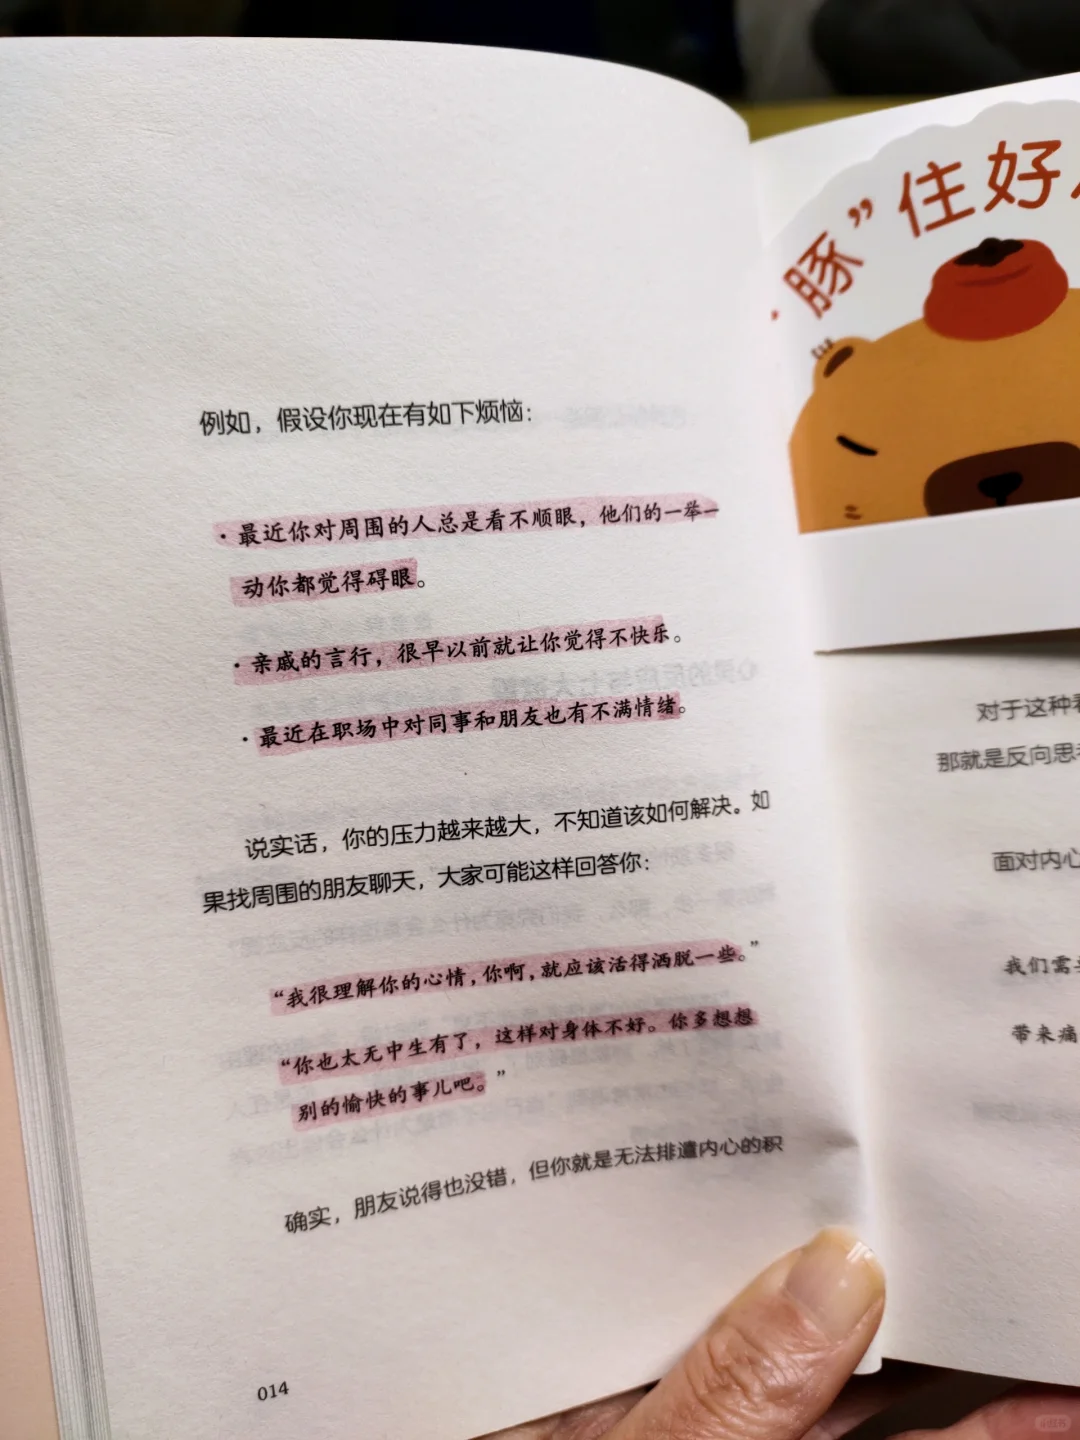 例如，假设你现在有如下烦恼：
· 最近你对周围的人总是看不顺眼，他们的一举一
动你都觉得碍眼。
· 亲戚的言行，很早以前就让你觉得不快乐。
· 最近在职场中对同事和朋友也有不满情绪。
说实话，你的压力越来越大，不知道该如何解决。如
果找周围的朋友聊天，大家可能这样回答你：
“我很理解你的心情，你啊，就应该活得洒脱一些。”
“你也太无中生有了，这样对身体不好。你多想想
别的愉快的事儿吧。”
确实，朋友说得也没错，但你就是无法排遣内心的积
014
豚”住好
对于这种
那就是反向思
面对内心
我们需
带来痛
小红书